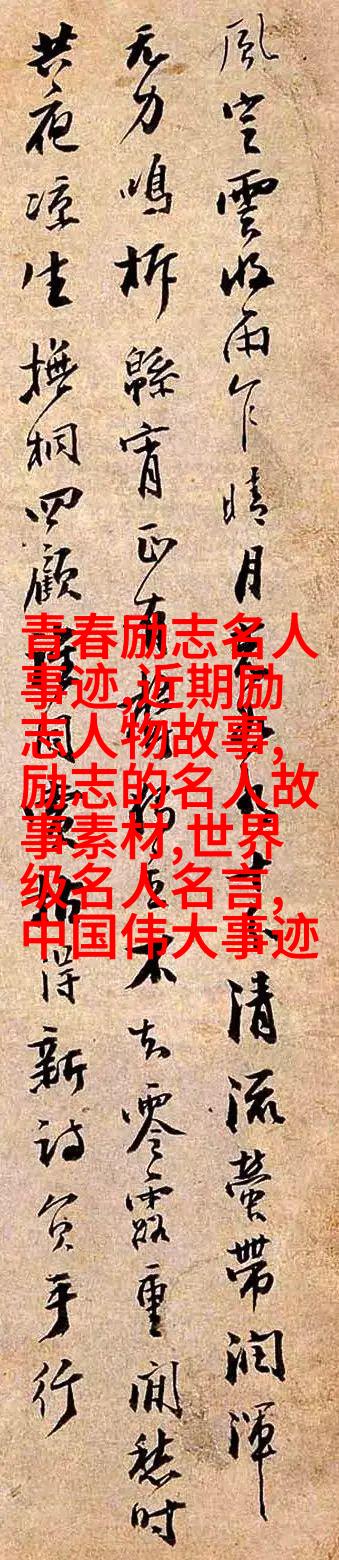 風定雲收雨乍晴月清流螢帶潤渾
无力鳴柝緜宵正有不零露重閒愁時
共夜凉生撫桐四顧得新詩負手行
青春励志名人
事迹,近期励
志人物故事,
励志的名人故
事素材,世界
级名人名言,
中国伟大事迹